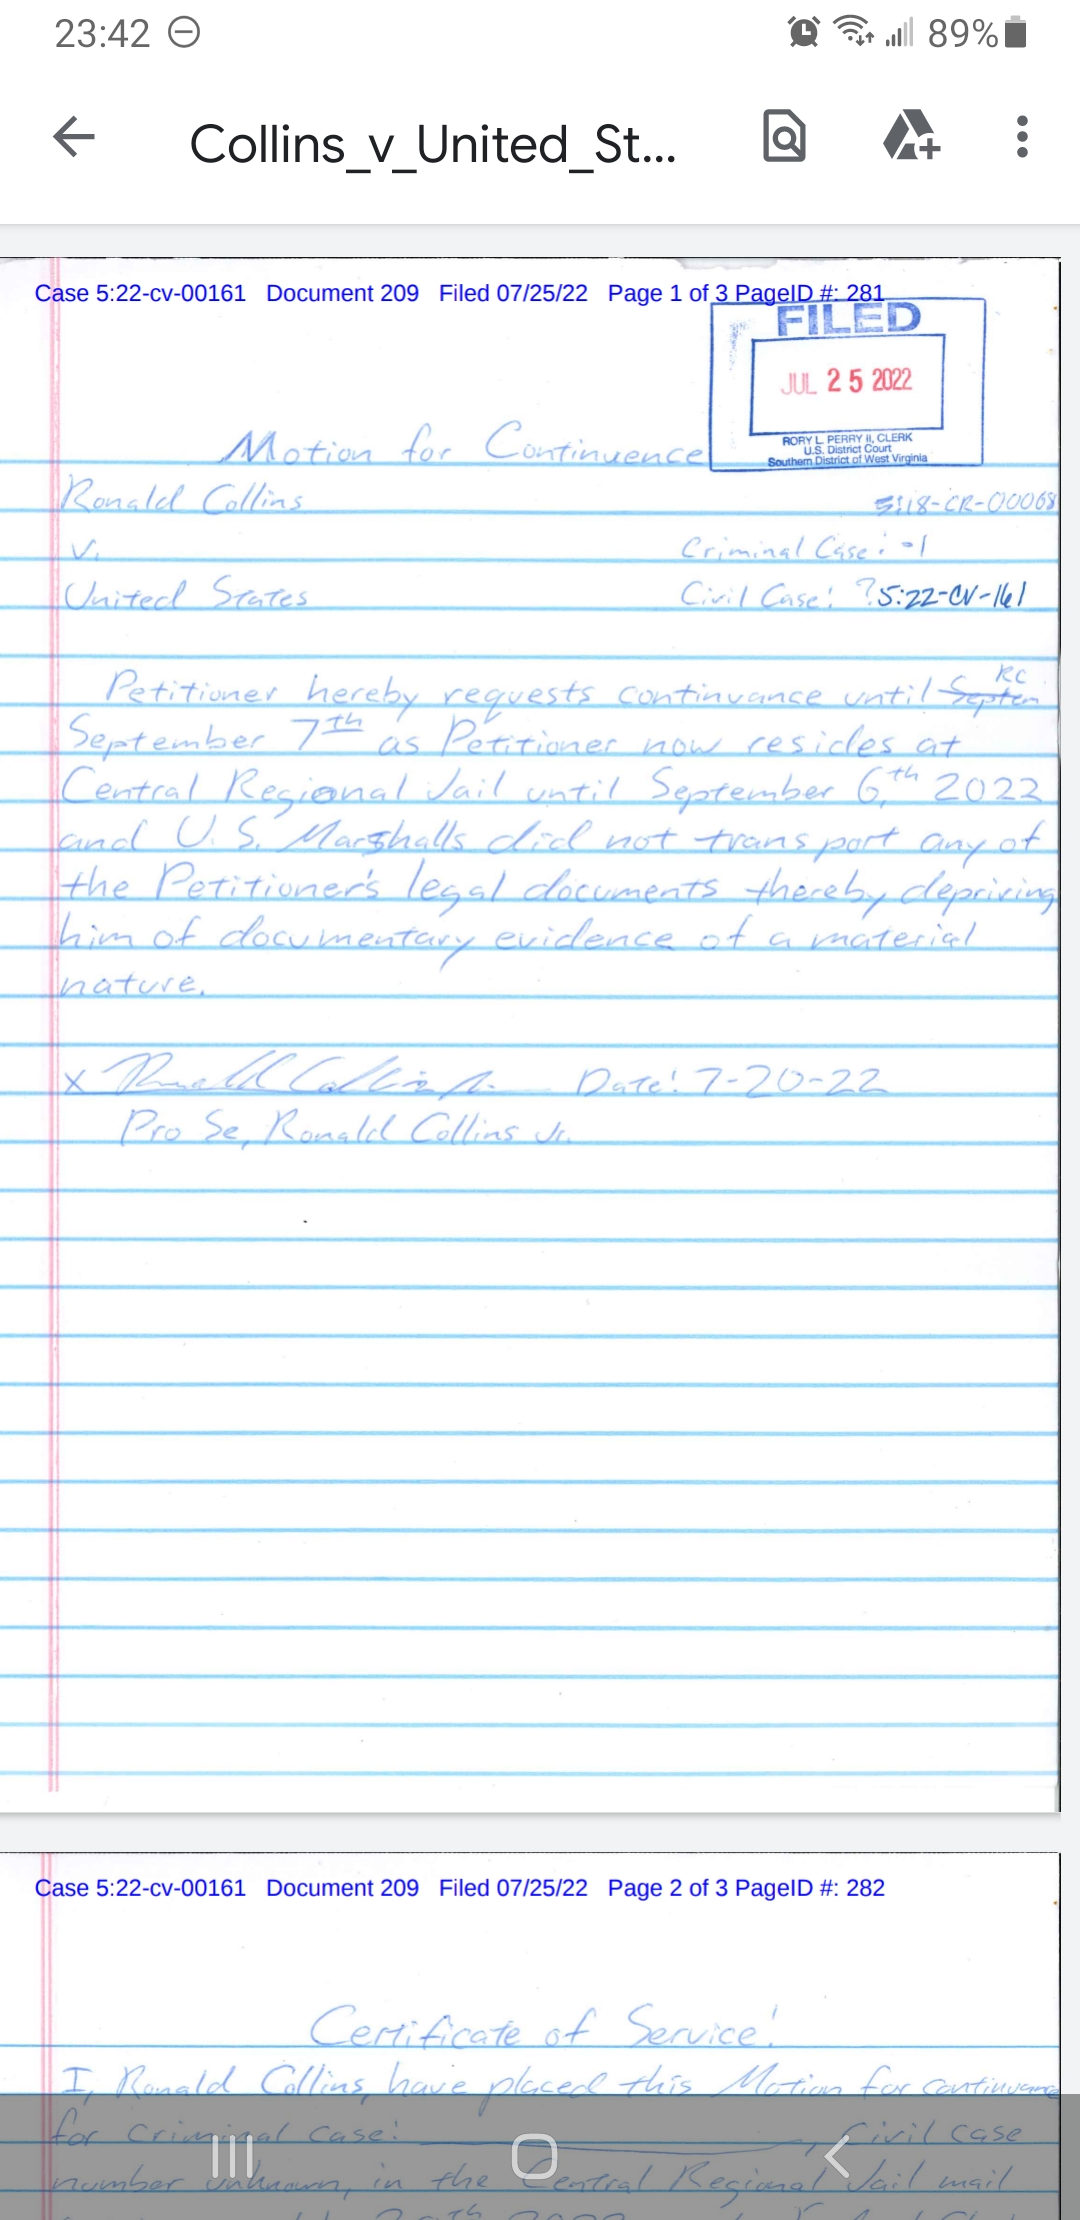 23:42
89%
Collins_v_United_St...
Case 5:22-cv-00161 Document 209 Filed 07/25/22 Page 1 of 3 PageID #: 281
FILED
JUL 25 2022
RORY L. PERRY II, CLERK
U.S. District Court
Southern District of West Virginia
Motion for Continuence
Ronald Collins
5:18-CR-00068
v.
Criminal Case: -1
United States
Civil Case: ? 5:22-CV-161
Petitioner hereby requests continuance until Septem RC
September 7th as Petitioner now resides at
Central Regional Jail until September 6th, 2022
and U.S. Marshalls did not transport any of
the Petitioner's legal documents thereby depriving
him of documentary evidence of a material
nature.
x Ronald Collins Jr. Date: 7-20-22
Pro Se, Ronald Collins Jr.
Case 5:22-cv-00161 Document 209 Filed 07/25/22 Page 2 of 3 PageID #: 282
Certificate of Service:
I, Ronald Collins, have placed this Motion for Continuance
for Criminal Case: , Civil case
number unknown, in the Central Regional Jail mail